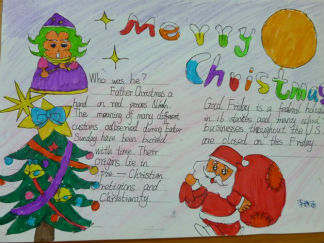 Merry
Christmas
Who was he?
Father Christmas a
The meaning of many different
customs observed during Easter
Sunday have been buried
with time. Their
origins lie in
pre-Christian
religions and
Christianity.
God Friday is a federal holiday
in 16 states and many school
businesses throughout the U.S.
are closed on this Friday